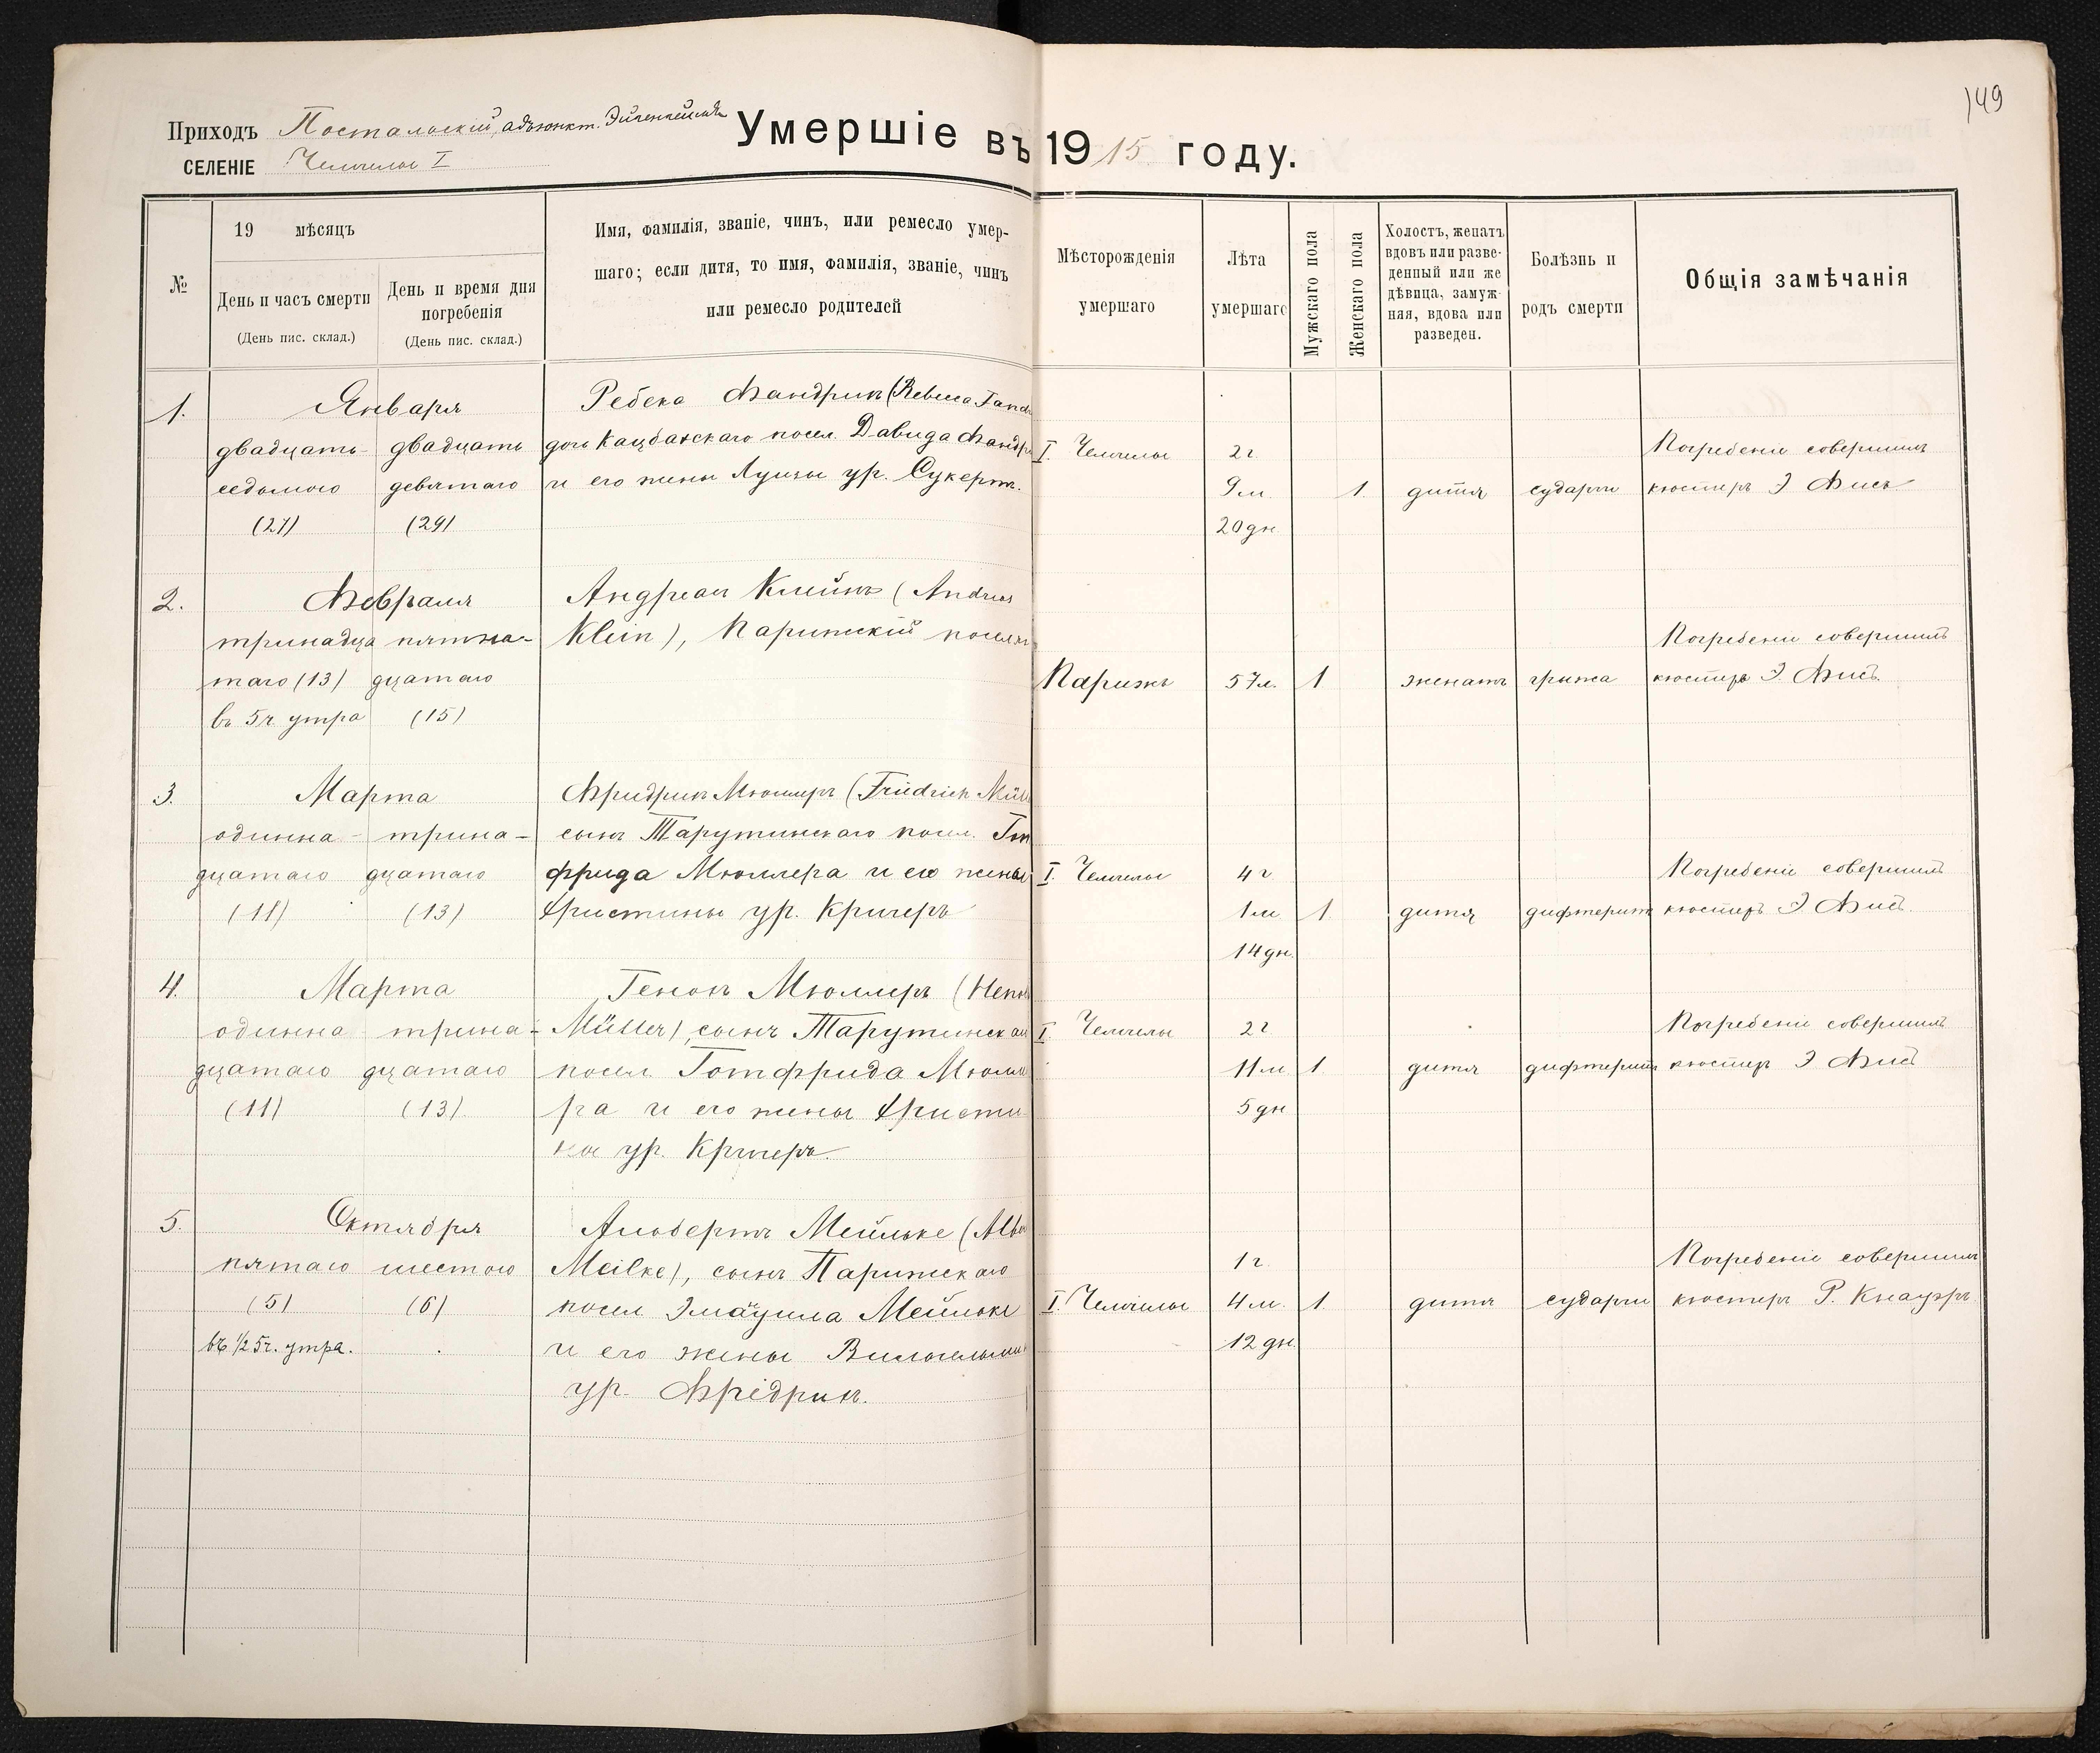 149
Приходъ Постальскій, адъюнкт.
СЕЛЕНІЕ Чемчелы I
Умершіе въ 1915 году.
№
19 мѣсяцъ
День и часъ смерти
(День пис. склад.)
День и время дня
погребенія
(День пис. склад.)
Имя, фамилія, званіе, чинъ, или ремесло умер-
шаго; если дитя, то имя, фамилія, званіе, чинъ
или ремесло родителей
Мѣсторожденія
умершаго
Лѣта
умершаго
Мужскаго пола
Женскаго пола
Холостъ, женатъ
вдовъ или разве-
денный или же
дѣвица, замуж-
няя, вдова или
разведен.
Болѣзнь и
родъ смерти
Общія замѣчанія
1.
Января
двадцать двадцать
седьмого девятаго
(27) (29)
Ребека Фандрих (Rebecca Fand
дочь Кацбахскаго посел. Давида Фандр
и его жены Луизы ур. Сукертъ.
I. Чемчелы
2 г
9 м
20 дн.
1
дитя
судароги
Погребеніе совершилъ
кюстеръ Э
2.
Февраля
тринадца пятна-
таго (13) дцатаго
въ 5 ч утра (15)
Андреас Клейнъ (Andreas
Klein), Парижскій посел
Парижъ
57 л.
1
женатъ
грыжа
Погребеніе совершилъ
кюстеръ Э.
3.
Марта
одинна- трина-
дцатаго дцатаго
(11) (13)
Фридрих Мюллеръ (Friedrich Müll
сынъ Тарутинскаго посел. Гот
фрида Мюллера и его жены
Христины ур. Кригеръ
I. Чемчелы
4 г
1 м
14 дн.
1
дитя
дифтеритъ
Погребеніе совершилъ
кюстеръ Э
4.
Марта
одинна- трина-
дцатаго дцатаго
(11) (13)
Генохъ Мюллеръ (Heno
Müller), сынъ Тарутинскаго
посел. Готфрида Мюлле
ра и его жены Христи
ны ур. Кригеръ.
I Чемчелы
2 г
11 м
5 дн
1
дитя
дифтеритъ
Погребеніе совершилъ
кюстеръ Э
5.
Октября
пятаго шестого
(5) (6)
въ ½ 5 ч. утра.
Альбертъ Мейльке (Albe
Meilke), сынъ Парижскаго
посел Эмануила Мейльке
и его жены Вильгельмин
ур. Фрідрих.
I. Чемчелы
1 г
4 м.
12 дн.
1
дитя
судароги
Погребеніе совершилъ
кюстеръ Р. Кнауэръ